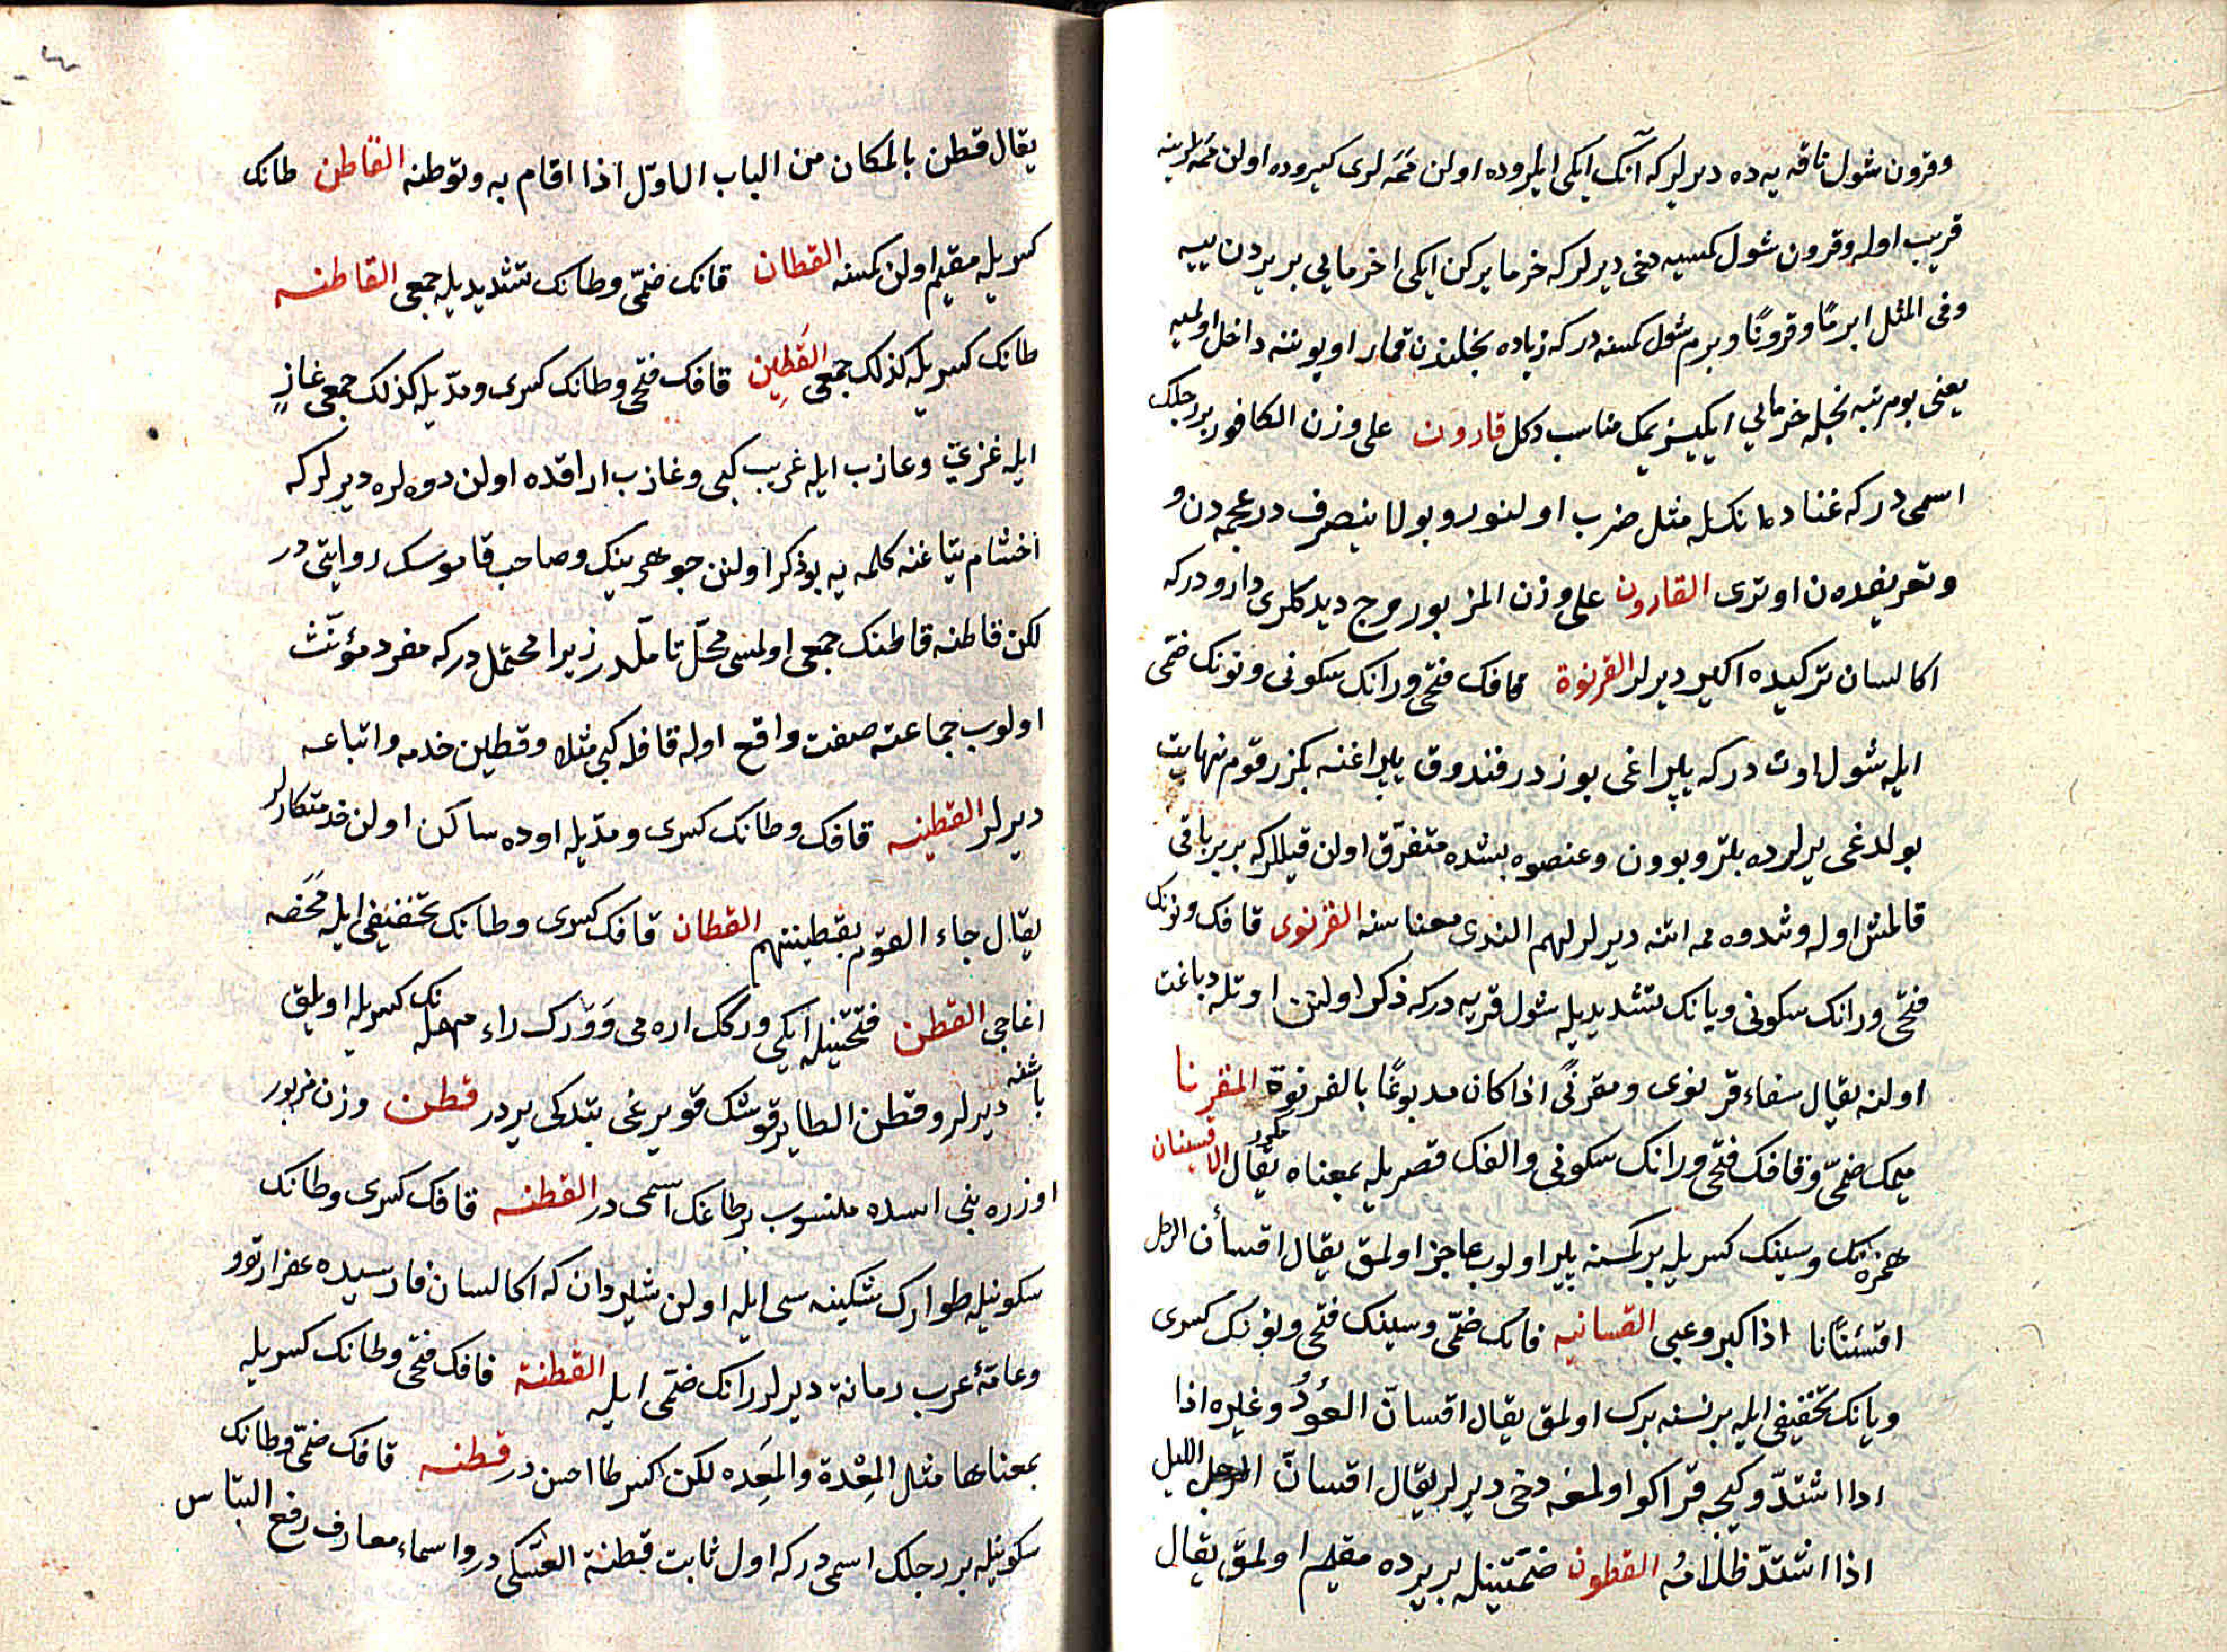 وقرون شول ناقه یه ده دیرلر که آنک ایکی ایلروده اولن ممه لری کیروده اولن ممه لرینه
قریب اوله وقرون شول کمسیه دخی دیرلر که خرما یرکن ایکی اخر مایی بر یردن ییه
وفی المثل ابرمًا وقرونًا وبرم شول کمسنه در که زیاده بخلندن قمار اویوننه داخل اولمیه
یعنی بو مرتبه بخله خرمایی ایکیشر یمک مناسب دکل قارون علی وزن الکافور بر رجلک
اسمی در که غنا ده انکله مثل ضرب اولنور و بو لا ینصرف در عجمه دن و
وتعریفدن اوتری القارون علی وزن المزبور وج دیدکلری دارو در که
اکا لسان ترکیده اکیر دیرلر القرنوة قافک فتحی ورانک سکونی ونونک ضمّی
ایله شول اوت در که یپراغی بوزدر فندوق یپراغنه بکزر قوم نهایت
بولدغی یرلرده بلتر وبوون وعنصوه بشده متفرّق اولن قیللر که بر بر باقی
قالمش اوله وثندوه ممه اتنه دیرلر لهم الثدی معناسنه القرنوی قافک ونونک
فتحی ورانک سکونی ویانک تشدیدیله شول قربه در که ذکر اولنن اوتله دباغت
اولنه یقال سقاء قرنوی ومقرنًی اذا کان مدبوغًا بالقرنوة المقرنا
میمک ضمّی وقافک فتحی ورانک سکونی والفک قصریله بمعناه یقال الاقسینان
همزه نک وسینک کسریله بر کمسنه پیر اولوب عاجز اولمق یقال اقسأن الرجل
اقسئنانا اذا کبر وعیی القسانیه قافک ضمّی وسینک فتحی ونونک کسری
ویانک تخفیفی ایله بر نسنه برک اولمق یقال اقسانّ العُودُ وغیره اذا
اذا اشتدّ وکیجه قراکو اولمغه دخی دیرلر یقال اقسانّ اللیل
اذا اشتدّ ظلامُه القطون ضمّتینله بر یرده مقیم اولمق یقال
یقال قطن بالمکان من الباب الاوّل اذا اقام به وتوطنه القاطن طانک
کسریله مقیم اولن کمسنه القطان قافک ضمّی وطانک تشدیدیله جمعی القاطنه
طانک کسریله کذلک جمعی القَطِین قافک فتحی وطانک کسری ومدّیله کذلک جمعی غازٍ
ایله غزیّ وعازب ایله غریب کبی وغازب اراقده اولن دوه لره دیرلر که
اخشام یتاغنه کلمه یه بو ذکر اولنن جوهرینک وصاحب قاموسک روایتی در
لکن قاطنه قاطنک جمعی اولمسی محلّ تأملّدر زیرا محتمل در که مفرد مؤنّث
اولوب جماعته صفت واقع اوله قافله کبی مثلا وقطین خدمه واتباعه
دیرلر القطینه قافک وطانک کسری ومدّیله اوده ساکن اولن خدمتکارلر
یقال جاء القوم بقطینتهم القطان قافک کسری وطانک تخفیفی ایله محفه
اغاجی القطن فتحتینله ایکی ورکک اره می وَوَرک راء مهمله نک کسریله اویلق
باشنه دیرلر وقطن الطایر قوشک قویرغی بتدکی یردر قطن وزن مزبور
اوزره بنی اسده منسوب بر طاغک اسمی در القطنه قافک کسری وطانک
سکونیله طوارک شکنبه سی ایله اولن شیردان که اکا لسان فارسیده هزارتوو
وعامّهٔ عرب رمانة دیرلر رانک ضمّی ایله القطنة قافک فتحی وطانک کسریله
بمعناها مثل المِعْدة والمَعِده لکن کسر طا احسن در قطنه قافک ضمّی وطانک
سکونیله بر رجلک اسمی در که اول ثابت قطنة العتکی در واسماء معارف رفع التباس